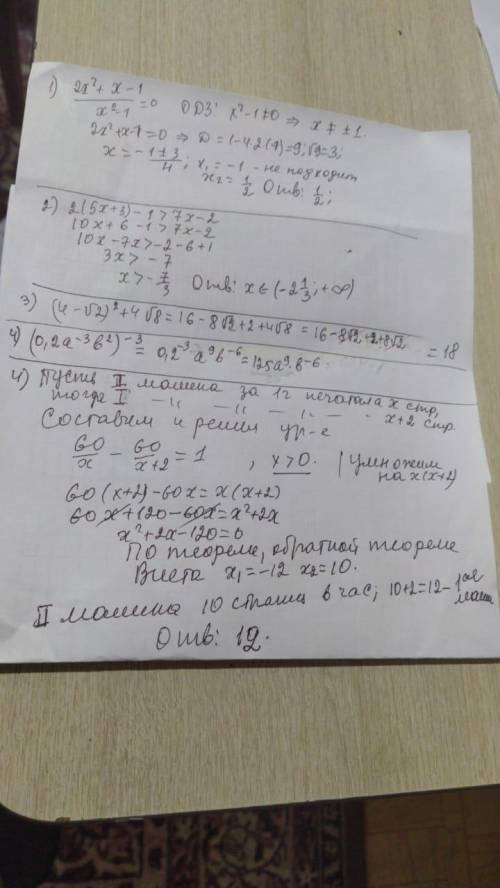 1) (2x²+x-1)/(x²-1)=0 ОДЗ: x²-1≠0 ⇒ x≠±1.
2x²+x-1=0 ⇒ D=1-4·2(-1)=9; √9=3;
x=(-1±3)/4; x₁=-1 - не подходит
x₂=1/2 Отв: 1/2;
2) 2(5x+3)-1>7x-2
10x+6-1>7x-2
10x-7x>-2-6+1
3x>-7
x>-7/3 Отв: x∈(-2 1/3;+∞)
3) (4-√2)²+4√8=16-8√2+2+4√8=16-8√2+2+8√2 =18
4) (0,2a⁻³b²)⁻³=0,2⁻³a⁹b⁻⁶=125a⁹b⁻⁶
4) Пусть II машина за 1ч печатала x стр,
тогда I —"— —"— x+2 стр.
Составим и решим ур-е
60/x - 60/(x+2)=1, x>0. | умножим на x(x+2)
60(x+2)-60x=x(x+2)
60x+120-60x=x²+2x
x²+2x-120=0
По теореме, обратной теореме
Виета x₁=-12 x₂=10.
II машина 10 страниц в час; 10+2=12-
Отв: 12.